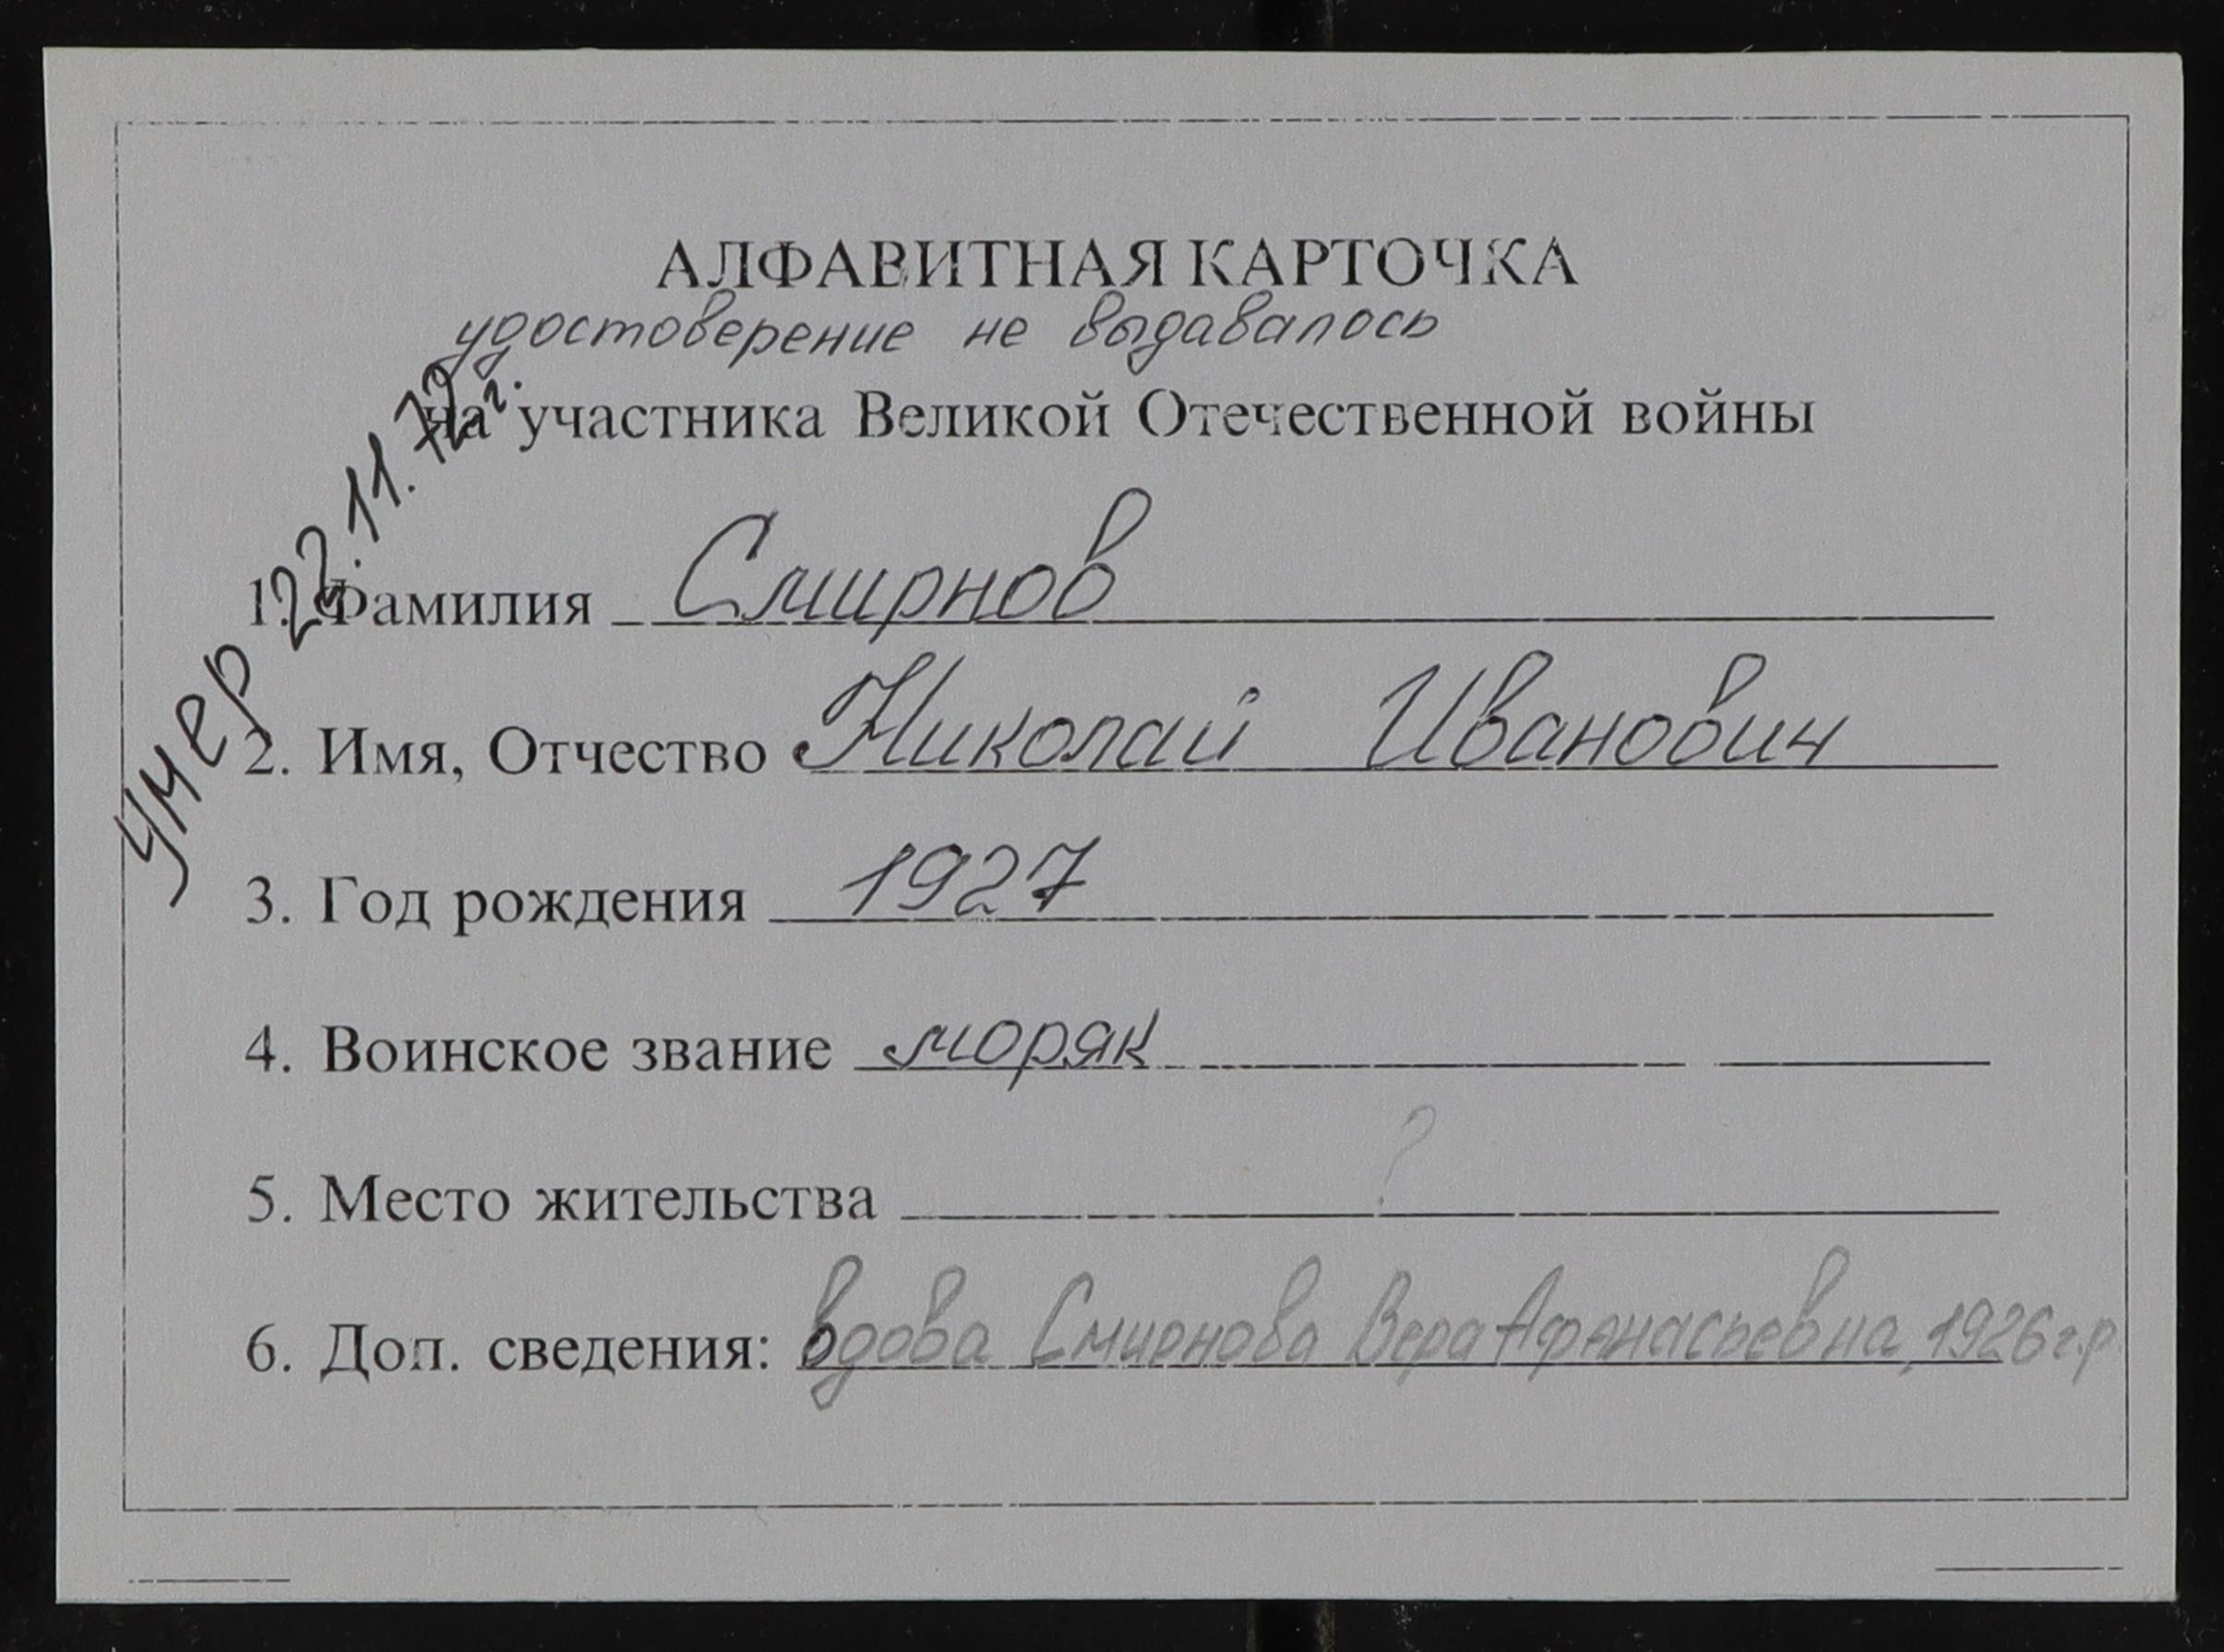 АЛФАВИТНАЯ КАРТОЧКА
удостоверение не выдавалось
на участника Великой Отечественной войны
Умер 22.11.72 г.
1. Фамилия Смирнов
2. Имя, Отчество Николай Иванович
3. Год рождения 1927
4. Воинское звание моряк
5. Место жительства ?
6. Доп. сведения: вдова Смирнова Вера Афанасьевна, 1926 г.р.